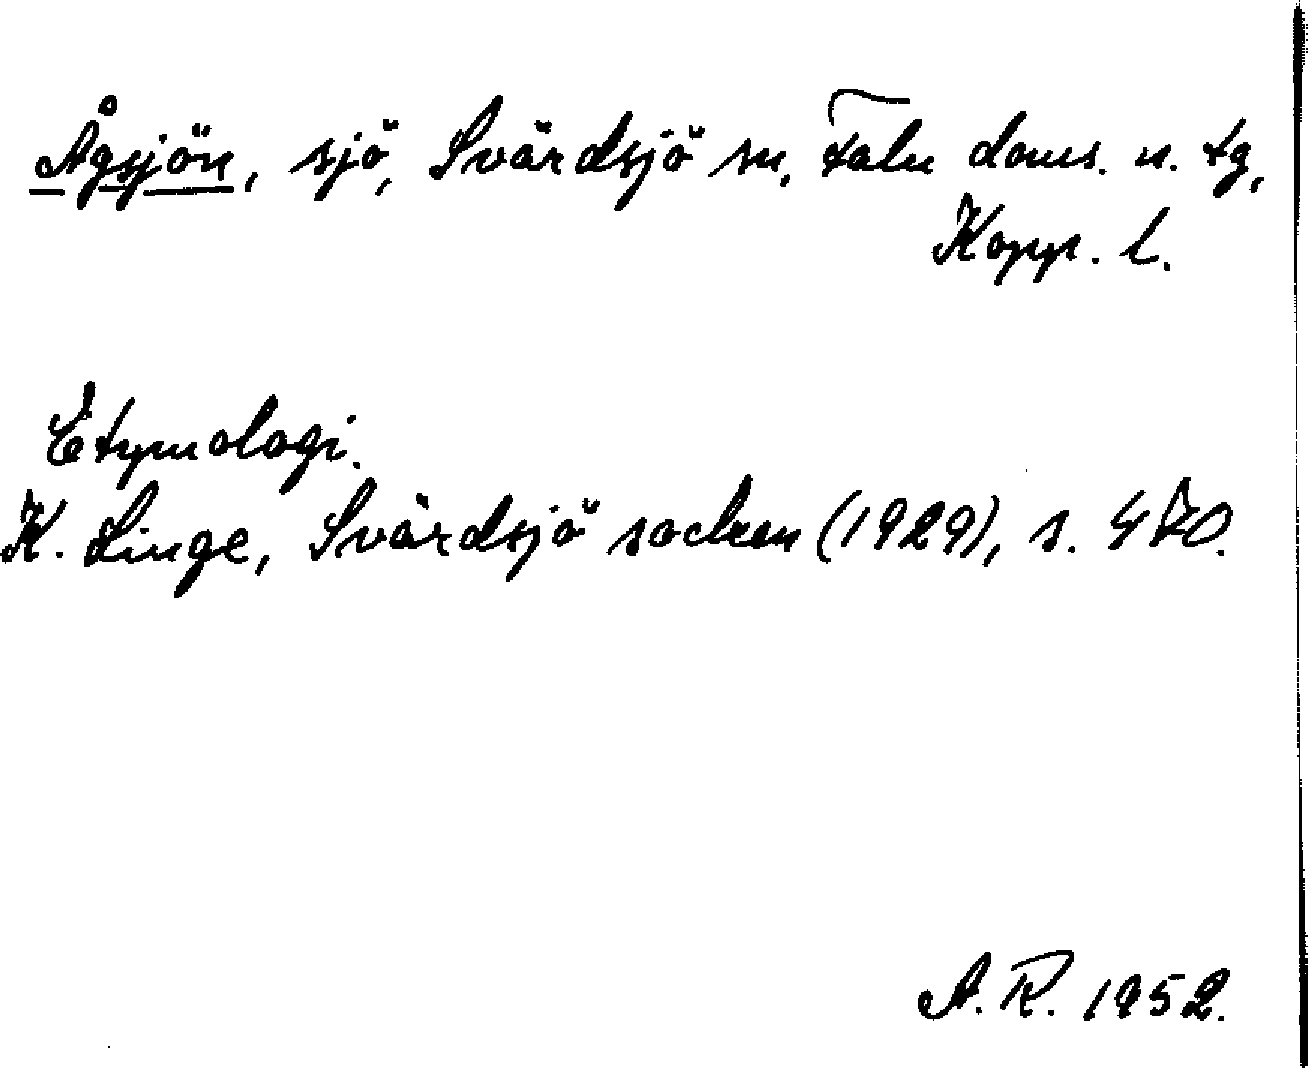 Ågsjön, sjö, Svärdsjö sn, Falu doms. n. tg,
Kopp. l.
Etymologi.
K. Linge, Svärdsjö socken (1929), s. 470.
A. R. 1952.